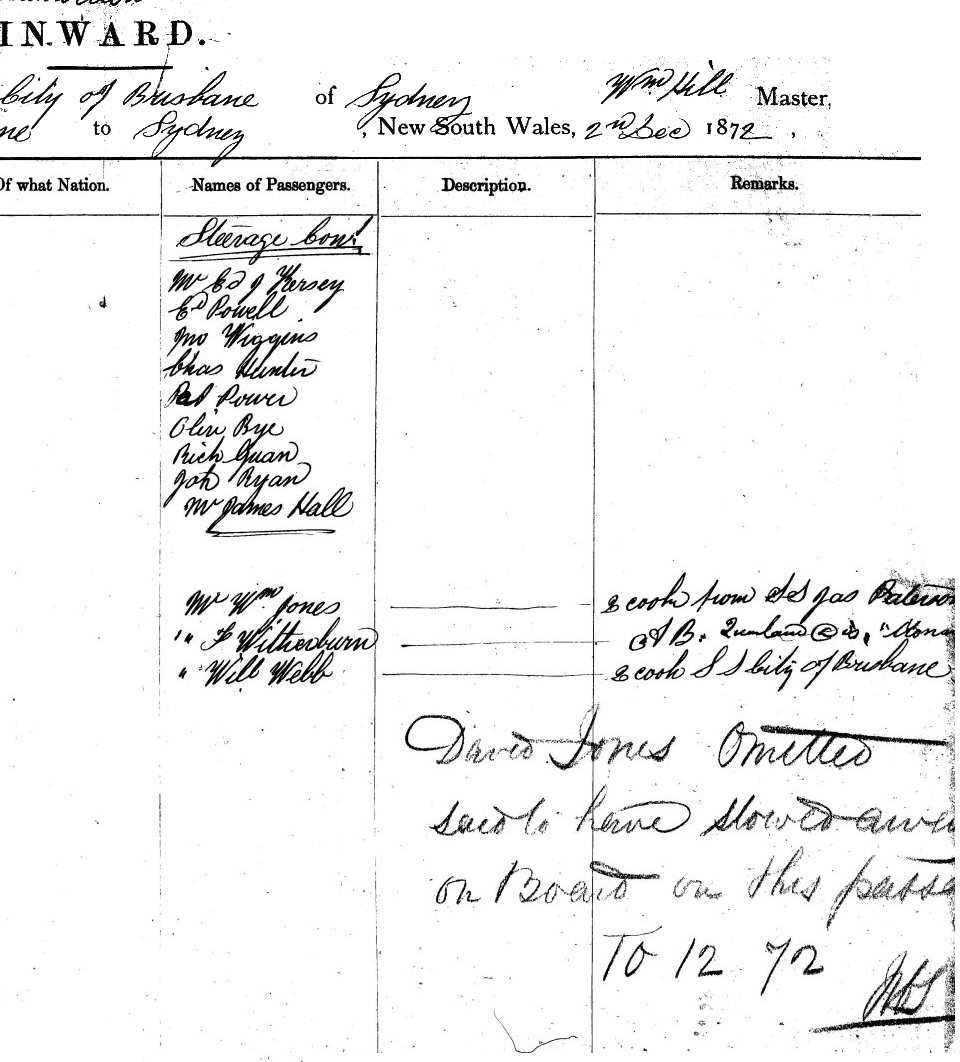 INWARD.
City of Brisbane of Sydney Wm Hill Master,
ne to Sydney, New South Wales, 2nd Dec 1872,
Of what Nation. Names of Passengers. Description. Remarks.
Steerage Cond
Mr Ed J Kersey
Ed Powell
Jno Wiggins
Chas Hunter
Pat Power
Oliv Bye
Rich Guan
Joh Ryan
Mr James Hall
Mr Wm Jones 2 cook from SS Jas Paterson
" F Witherburn AB.
" Will Webb 2 cook S S City of Brisbane
David Jones Omitted
said to have stowed away
on Board on this passa
10 12 72